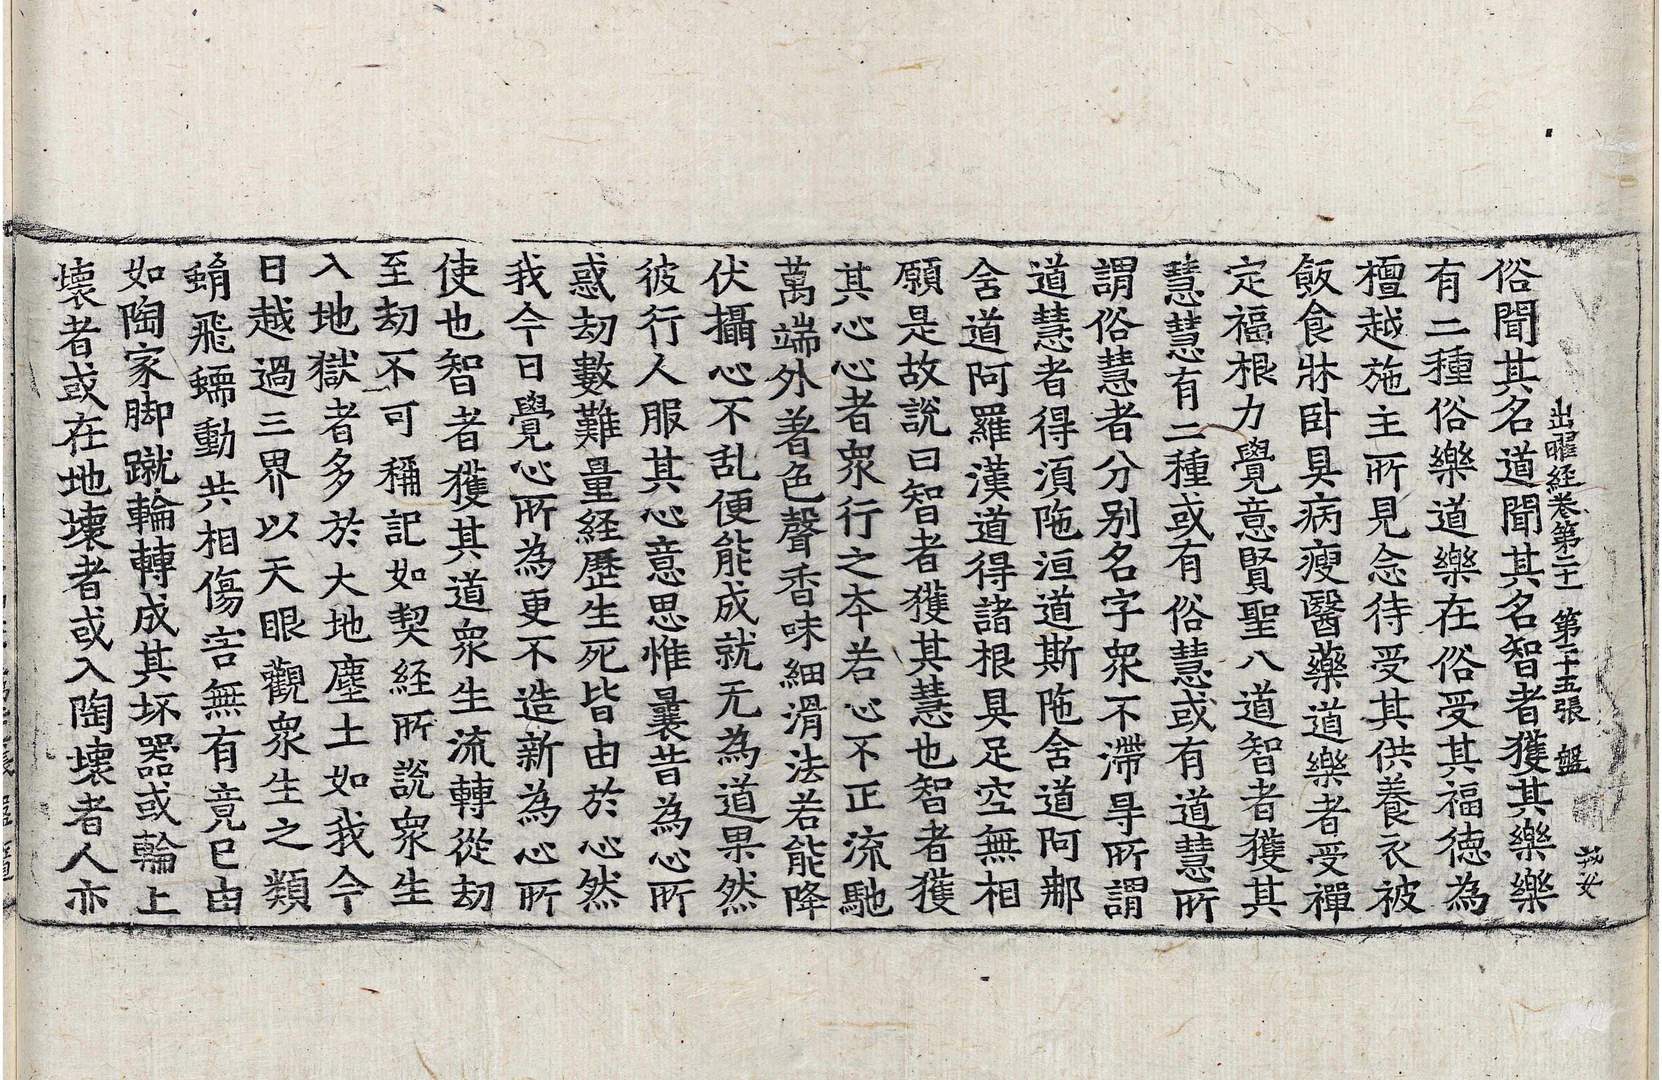 出曜経卷第二十一　第二十五張　盤
俗聞其名道聞其名智者獲其樂樂
有二種俗樂道樂在俗受其福德為
檀越施主所見念待受其供養衣被
飯食牀卧具病瘦醫藥道樂者受禪
定福根力覺意賢聖八道智者獲其
慧慧有二種或有俗慧或有道慧所
謂俗慧者分别名字衆不滯㝵所謂
道慧者得湏陁洹道斯陁含道阿那
含道阿羅漢道得諸根具足空無相
願是故說曰智者獲其慧也智者獲
其心心者衆行之夲若心不正流馳
萬端外着色聲香味細滑法若能降
伏攝心不乱便能成就无為道果然
彼行人服其心意思惟曩昔為心所
惑刧數難量経歷生死皆由於心然
我今日覺心所為更不造新為心所
使也智者獲其道衆生流轉從刧
至刧不可稱記如契経所說衆生
入地獄者多於大地塵土如我今
日越過三界以天眼觀衆生之類
蜎飛蠕動共相傷害無有竟已由
如陶家脚蹴輪轉成其坏器或輪上
壞者或在地壞者或入陶壞者人亦